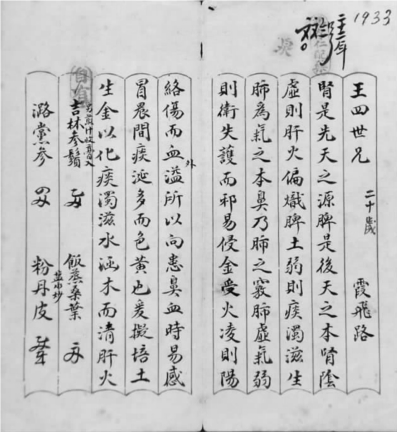 1933
王四世兄 二十歲 霞飛路
腎是先天之源脾是後天之本腎陰
虛則肝火偏熾脾土弱則痰濁滋生
肺為氣之本鼻乃肺之竅肺虛氣弱
則衛失護而邪易侵金受火凌則陽
絡傷而血溢外所以向患鼻血時易感
冒晨間痰涎多而色黃也爰擬培土
生金以化痰濁滋水涵木而清肝火
吉林參鬚 飯蒸桑葉
潞黨參 粉丹皮 鹽水炒